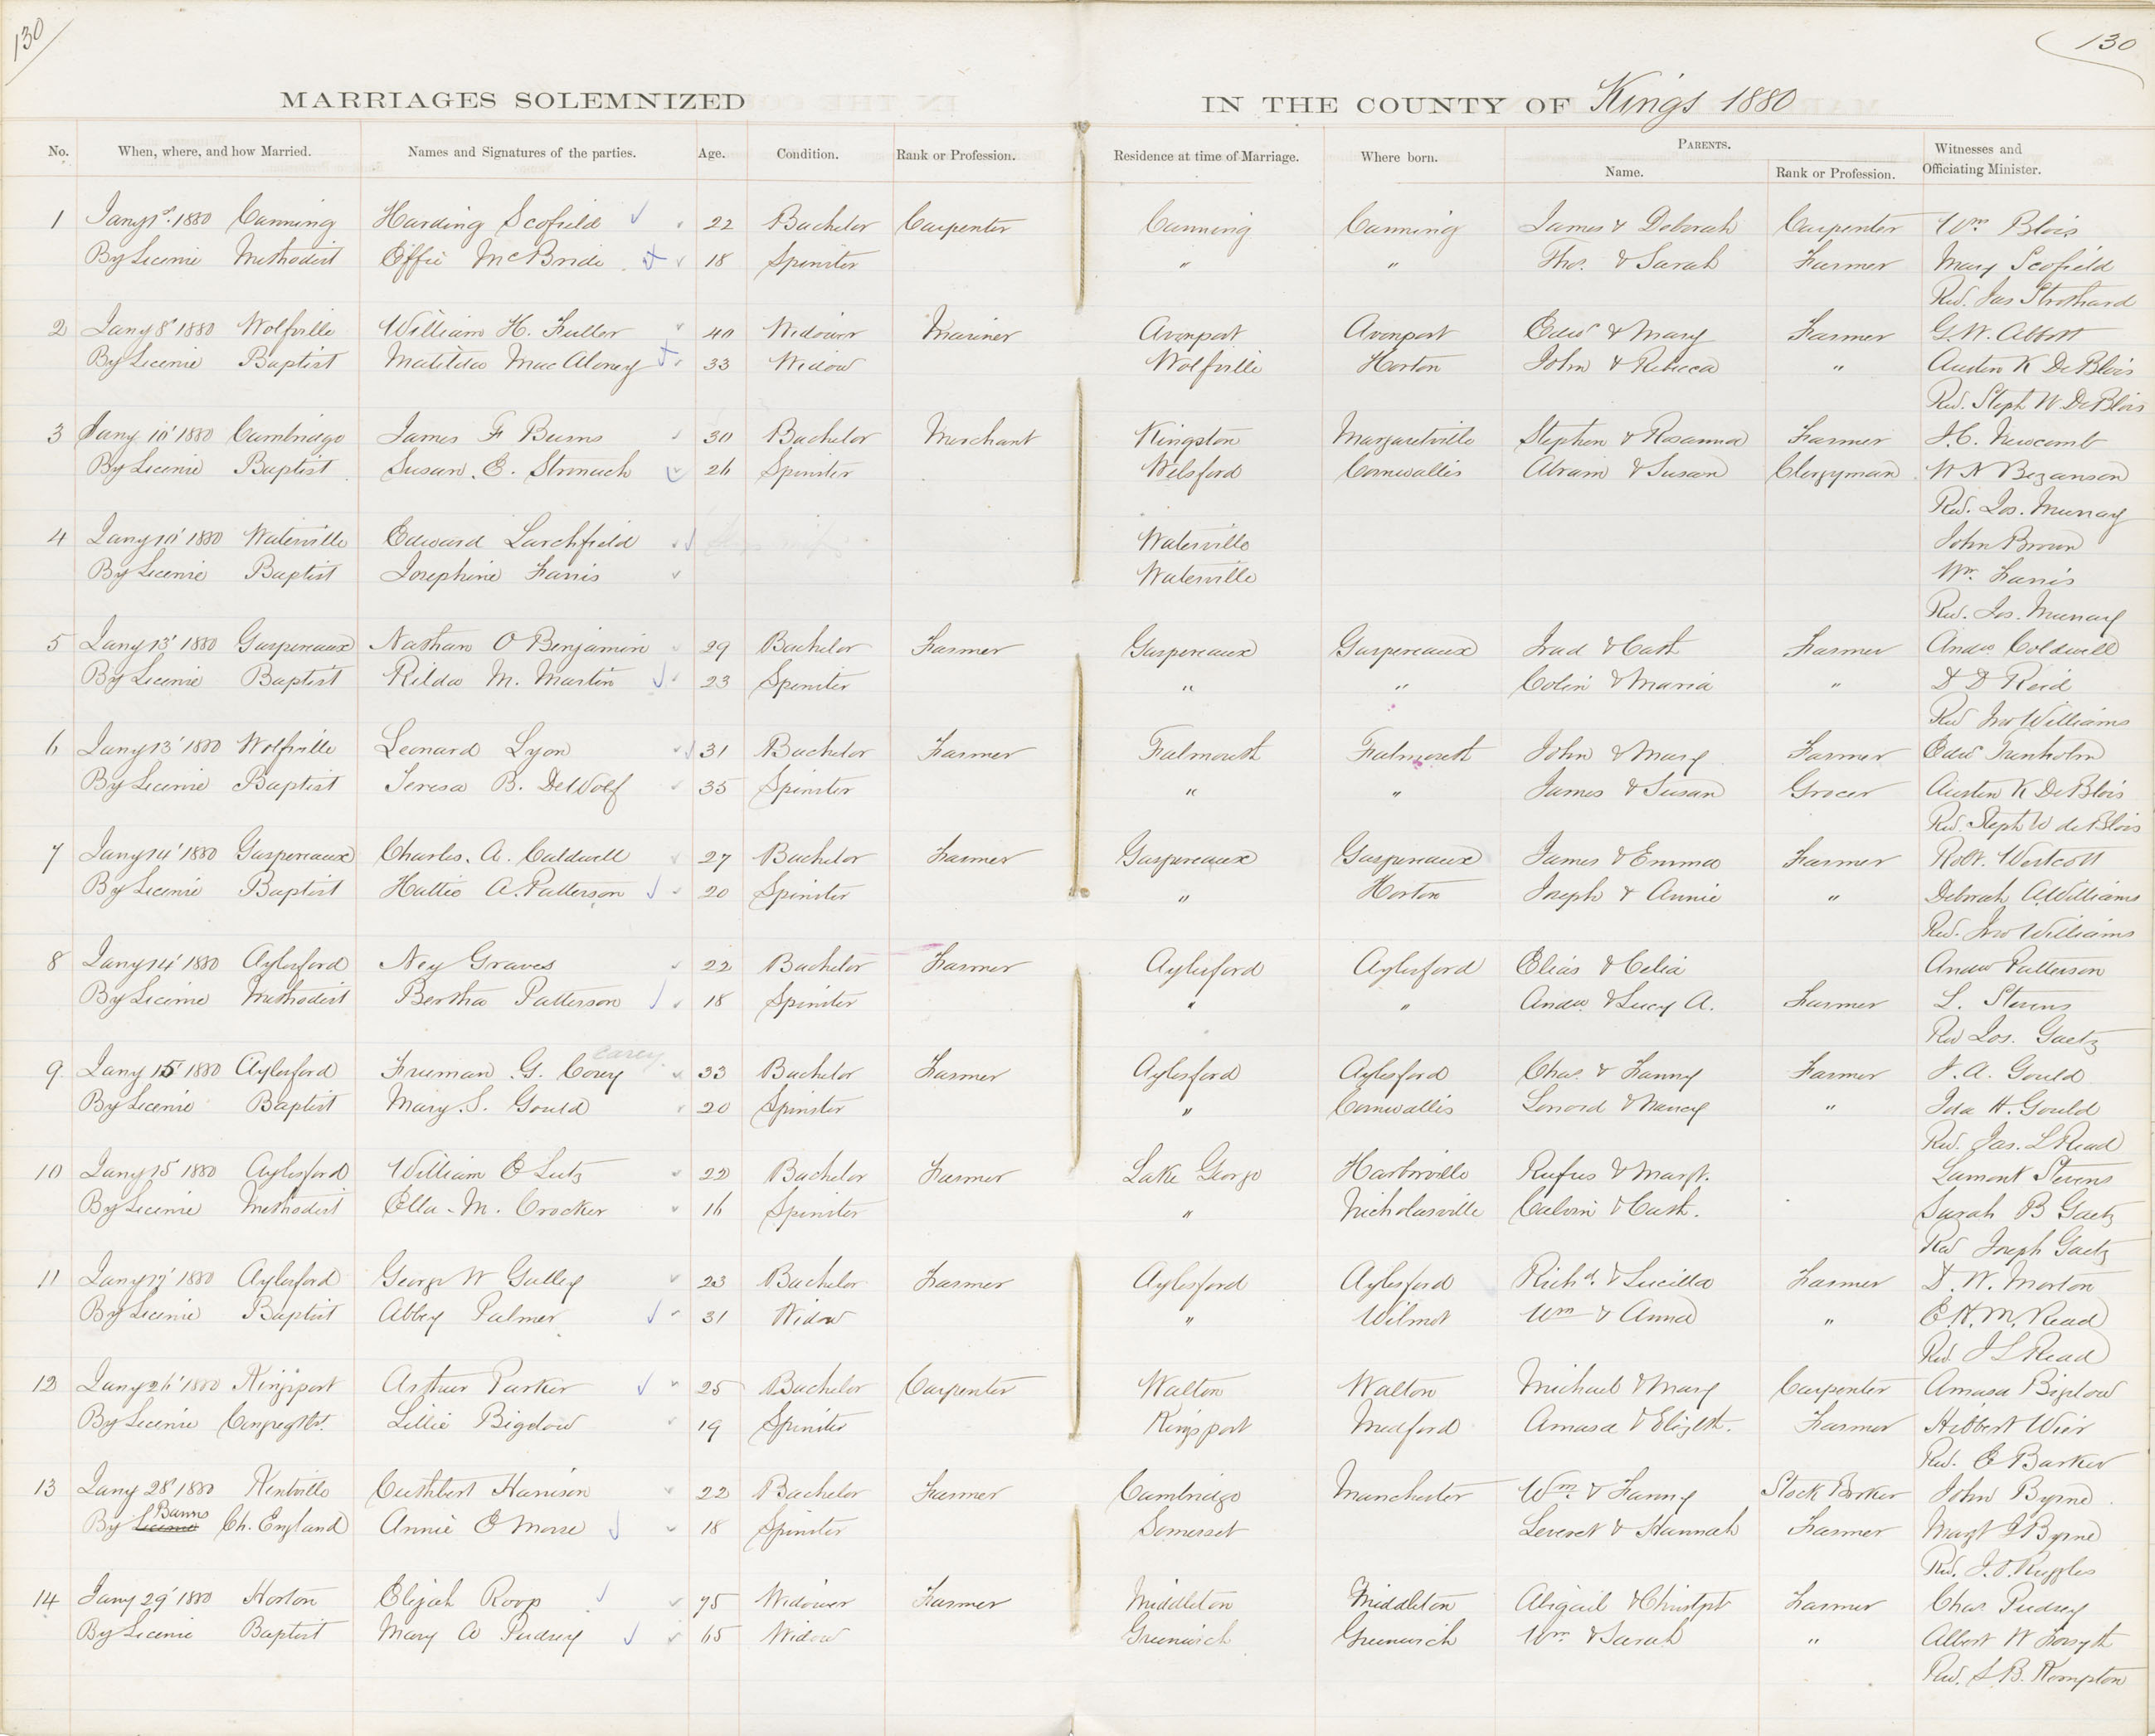 130
130
MARRIAGES SOLEMNIZED IN THE COUNTY OF Kings 1880
No. When, where, and how Married. Names and Signatures of the parties. Age. Condition. Rank or Profession. Residence at time of Marriage. Where born. PARENTS. Name. Rank or Profession. Witnesses and Officiating Minister.
1 Jany 1st 1880 Canning Harding Scofield 22 Bachelor Carpenter Canning Canning James & Deborah Carpenter Wm Blois
By Licence Methodist Effie McBride 18 Spinster " " Thos. & Sarah Farmer Mary Scofield
Rev. Jas Strothard
2 Jany 8' 1880 Wolfville William H. Fuller 40 Widower Mariner Avonport Avonport Edwd & Mary Farmer G. W. Abbott
By Licence Baptist Matilda MacAloney 33 Widow Wolfville Horton John & Rebecca " Austen K DeBlois
Rev. Steph W DeBlois
3 Jany 10' 1880 Cambridge James F Burns 30 Bachelor Merchant Kingston Margaretville Stephen & Rosanna Farmer J. C. Newcomb
By Licence Baptist Susan. E. Stronach 26 Spinster Welsford Cornwallis Abram & Susan Clergyman W N Bezanson
Rev. Jos. Murray
4 Jany 10' 1880 Waterville Edward Larchfield Waterville John Brown
By Licence Baptist Josephine Farris Waterville Wm. Farris
Rev. Jos. Murray
5 Jany 13' 1880 Gaspereaux Nathan O Benjamin 29 Bachelor Farmer Gaspereaux Gaspereaux Irad & Cath Farmer Andw Coldwell
By Licence Baptist Rilda M. Martin 23 Spinster " " Colin & Maria " D D Reid
Rev Jno Williams
6 Jany 13' 1880 Wolfville Leonard Lyon 31 Bachelor Farmer Falmouth Falmouth John & Mary Farmer Edwd Trenholm
By Licence Baptist Teresa B. DeWolf 35 Spinster " " James & Susan Grocer Austen K DeBlois
Rev. Steph W de Blois
7 Jany 14' 1880 Gaspereaux Charles. A. Caldwell 27 Bachelor Farmer Gaspereaux Gaspereaux James & Emma Farmer Robt. Westcott
By Licence Baptist Hattie A. Patterson 20 Spinster " Horton Joseph & Annie " Deborah A Williams
Rev. Jno Williams
8 Jany 14' 1880 Aylesford Ney Graves 22 Bachelor Farmer Aylesford Aylesford Elias & Celia Andw Patterson
By Licence Methodist Bertha Patterson 18 Spinster " " Andw. & Lucy A. Farmer L. Stevens
Rev Jos. Gaetz
Carey
9 Jany 15' 1880 Aylesford Freeman G. Corey 33 Bachelor Farmer Aylesford Aylesford Chas. & Fanny Farmer J. A. Gould
By Licence Baptist Mary. S. Gould 20 Spinster " Cornwallis Lenord & Nancy " Ida H. Gould
Rev. Jas. L Read
10 Jany 15' 1880 Aylesford William E Lutz 22 Bachelor Farmer Lake George Harborville Rufus & Margt. Lamont Stevens
By Licence Methodist Ella. M. Crocker 16 Spinster " Nicholasville Calvin & Cath. Sarah B Gaetz
Rev Joseph Gaetz
11 Jany 17' 1880 Aylesford George W Gulley 23 Bachelor Farmer Aylesford Aylesford Richd. & Lucilla Farmer D. W. Morton
By Licence Baptist Abbey Palmer 31 Widow " Wilmot Wm & Anna " E. H. M. Read
Rev. J L Read
12 Jany 26' 1880 Kingsport Arthur Parker 25 Bachelor Carpenter Walton Walton Michael & Mary Carpenter Amasa Bigelow
By Licence Congregtst. Lillie Bigelow 19 Spinster Kingsport Medford Amasa & Elizth. Farmer Hibbert Wier
Rev. E Barker
13 Jany 28' 1880 Kentville Cuthbert Harrison 22 Bachelor Farmer Cambridge Manchester Wm. & Fanny Stock Broker John Byrne
By Licence Banns Ch. England Annie E Morse 18 Spinster Somerset Leveret & Hannah Farmer Margt J Byrne
Rev. J. O. Ruggles
14 Jany 29' 1880 Horton Elijah Roop 75 Widower Farmer Middleton Middleton Abigail & Christph Farmer Chas. Pudsey
By Licence Baptist Mary A Pudsey 65 Widow Greenwich Greenwich Wm & Sarah " Albert W Forsyth
Rev. S. B. Kempton